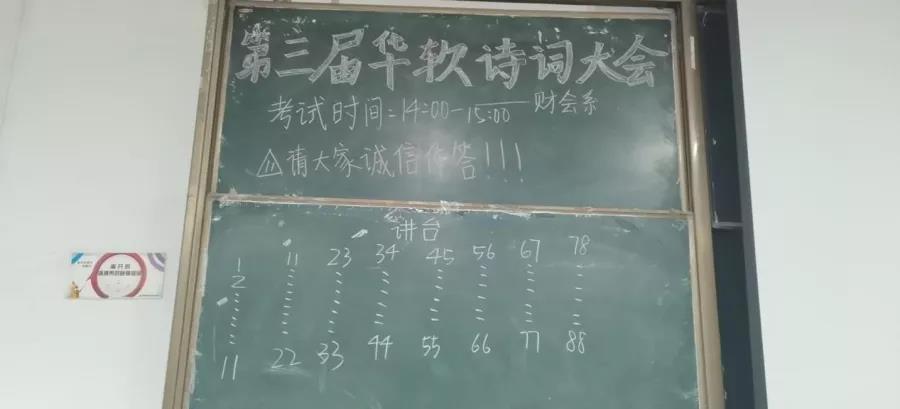 第三届华软诗词大会
考试时间:14:00-15:00 财会系
请大家诚信作答!!!
讲台
1 11 23 34 45 56 67 78
2
11 22 33 44 55 66 77 88
离开后